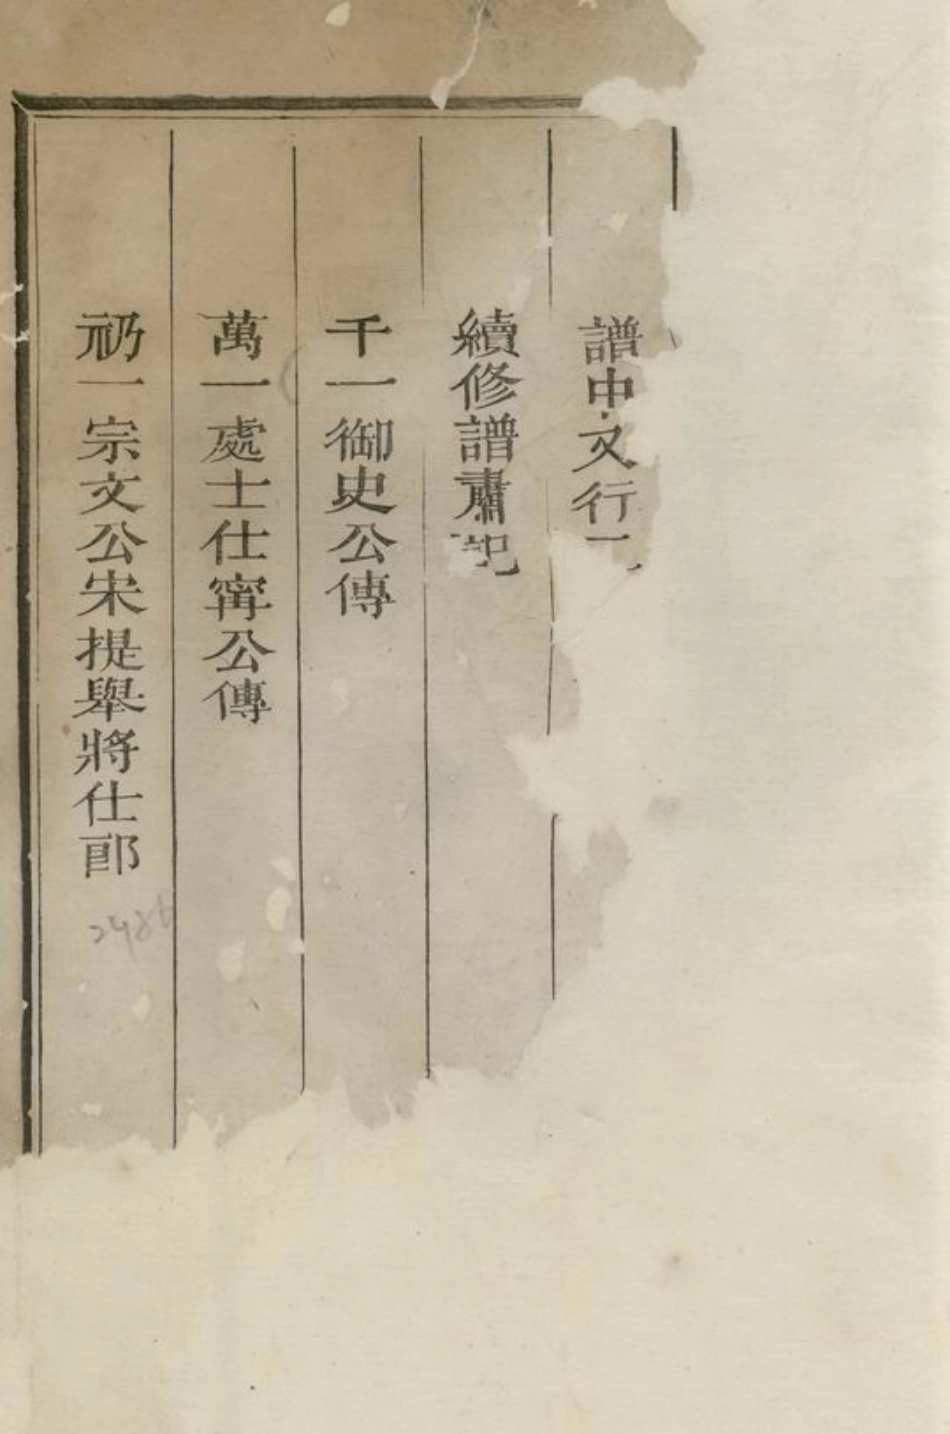 譜中文行
續修譜肅記
千一御史公傳
萬一處士仕寗公傳
礽一宗文公宋提舉將仕郎